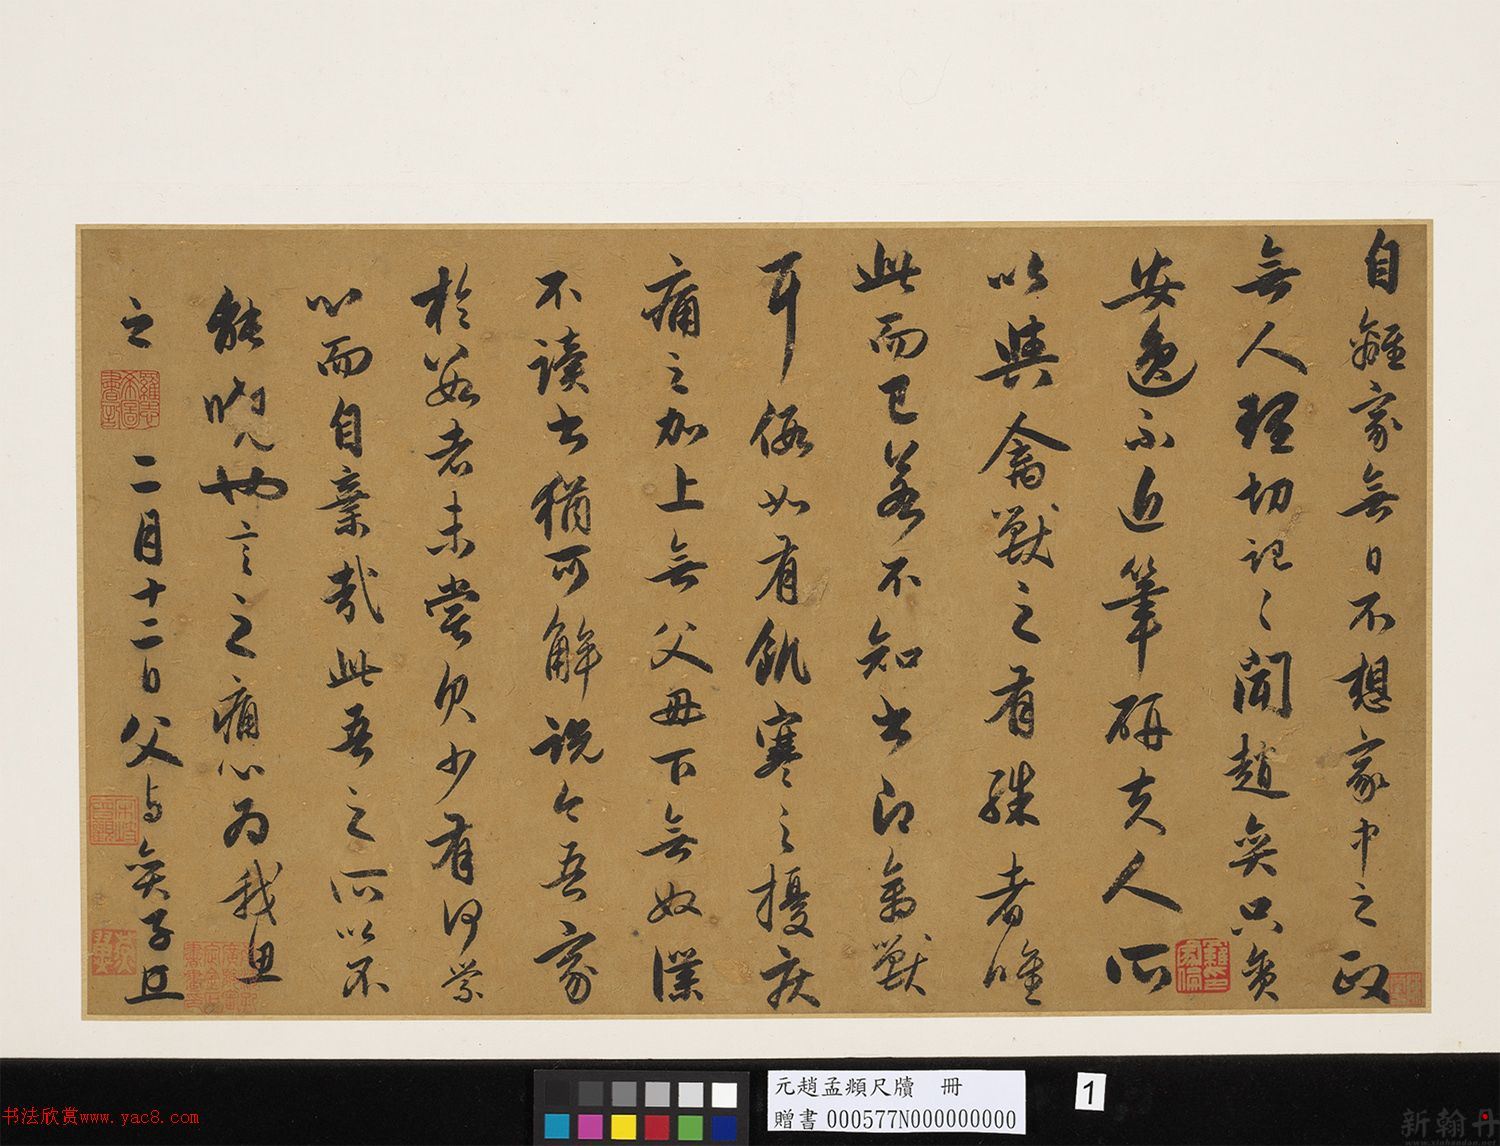 自離家無日不想家中之政
無人理切記〻聞趙奕只貪
安逸不近筆硯夫人所
以異禽獸之有殊者唯
此而已若不知書即禽獸
耳假如有飢寒之擾疾
痛之加上無父母下無奴僕
不讀書猶可解說今吾家
於若者未嘗欠少有何
心而自棄哉此吾之所以不
能曉也言之痛心為我思
之 二月十二日父与奕子
元趙孟頫尺牘 冊
贈書 000577N000000000
1
书法欣赏www.yac8.com
新翰丹